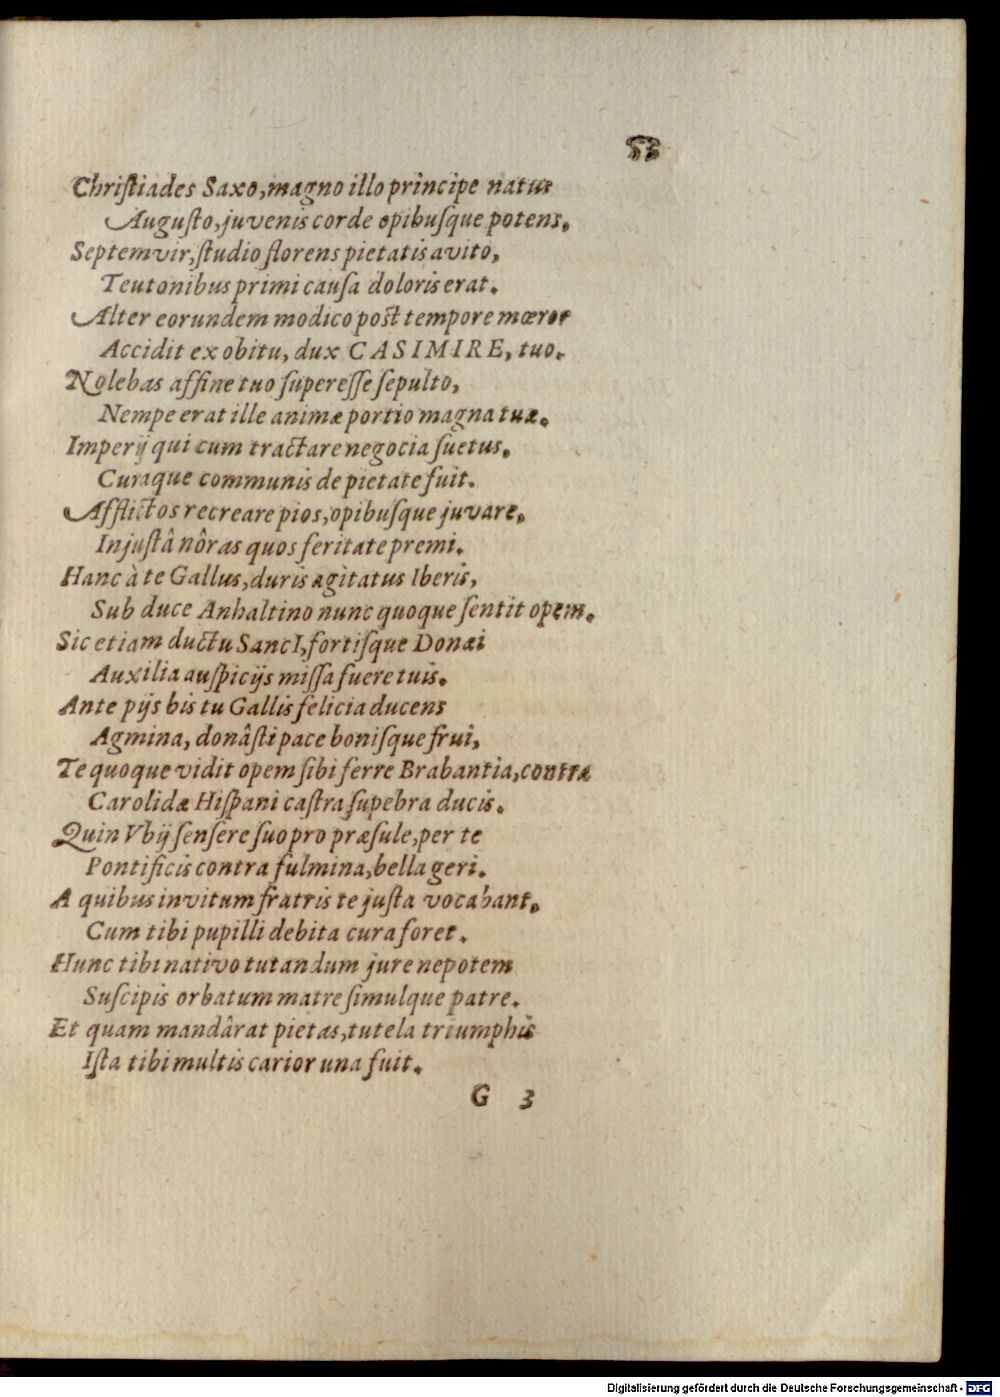 53
Chriſtiades Saxo, magno illo principe natus
Auguſto, juvenis corde opibuſque potens,
Septemvir, ſtudio florens pietatis avito,
Teutonibus primi cauſa doloris erat.
Alter eorundem modico poſt tempore mœror
Accidit ex obitu, dux CASIMIRE, tuo.
Nolebas affine tuo ſupereſſe ſepulto,
Nempe erat ille animæ portio magna tuæ.
Imperij qui cum tractare negocia ſuetus,
Curaque communis de pietate fuit.
Afflictos recreare pios, opibuſque juvare,
Injuſtâ nôras quos feritate premi.
Hanc à te Gallus, duris agitatus Iberis,
Sub duce Anhaltino nunc quoque ſentit opem.
Sic etiam ductu SancI, fortiſque Donæi
Auxilia auſpicijs miſſa fuere tuis.
Ante pijs bis tu Gallis felicia ducens
Agmina, donâſti pace boniſque frui,
Te quoque vidit opem ſibi ferre Brabantia, contra
Carolidæ Hiſpani caſtra ſupebra ducis.
Quin Vbij ſenſere ſuo pro præſule, per te
Pontificis contra fulmina, bella geri.
A quibus invitum fratris te juſta vocabant,
Cum tibi pupilli debita cura foret.
Hunc tibi nativo tutandum jure nepotem
Suſcipis orbatum matre ſimulque patre.
Et quam mandârat pietas, tutela triumphis
Iſta tibi multis carior una fuit.
G 3
Digitalisierung gefördert durch die Deutsche Forschungsgemeinschaft - DFG